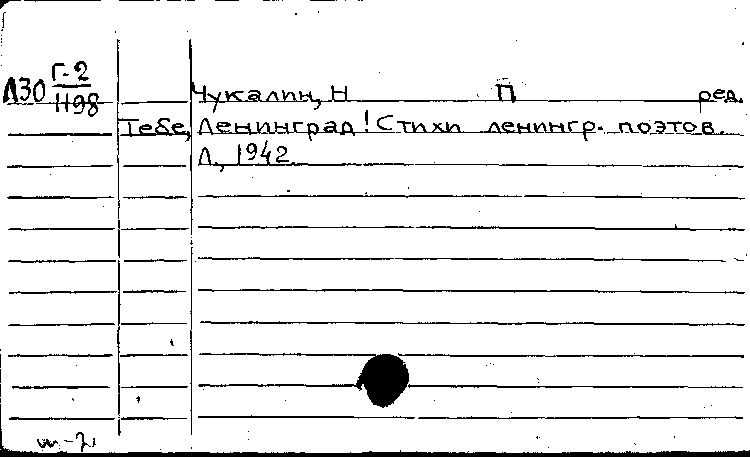 Л30 Г-2
1198
Чукалин, Н П ред.
Тебе, Ленинград! Стихи ленингр. поэтов.
Л., 1942